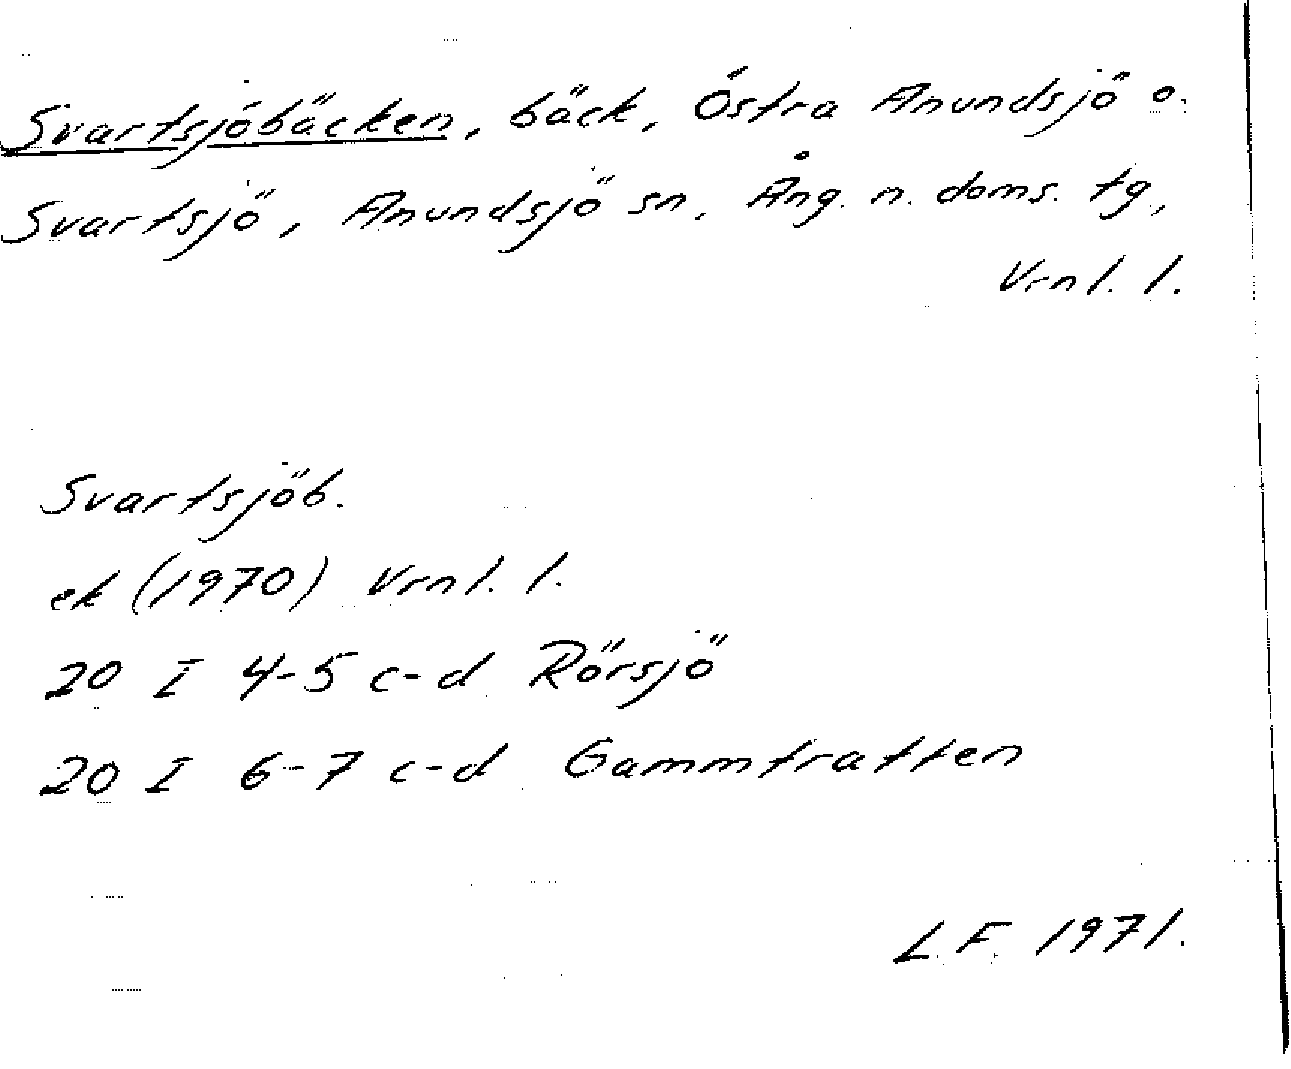 Svartsjöbäcken, bäck, Östra Anundsjö o.
Svartsjö, Anundsjö sn, Ång. n. doms. tg,
Vrnl. l.
Svartsjöb.
ek (1970) Vrnl. l.
20 I 4-5 c-d Rörsjö
20 I 6-7 c-d Gammtratten
L.F. 1971.